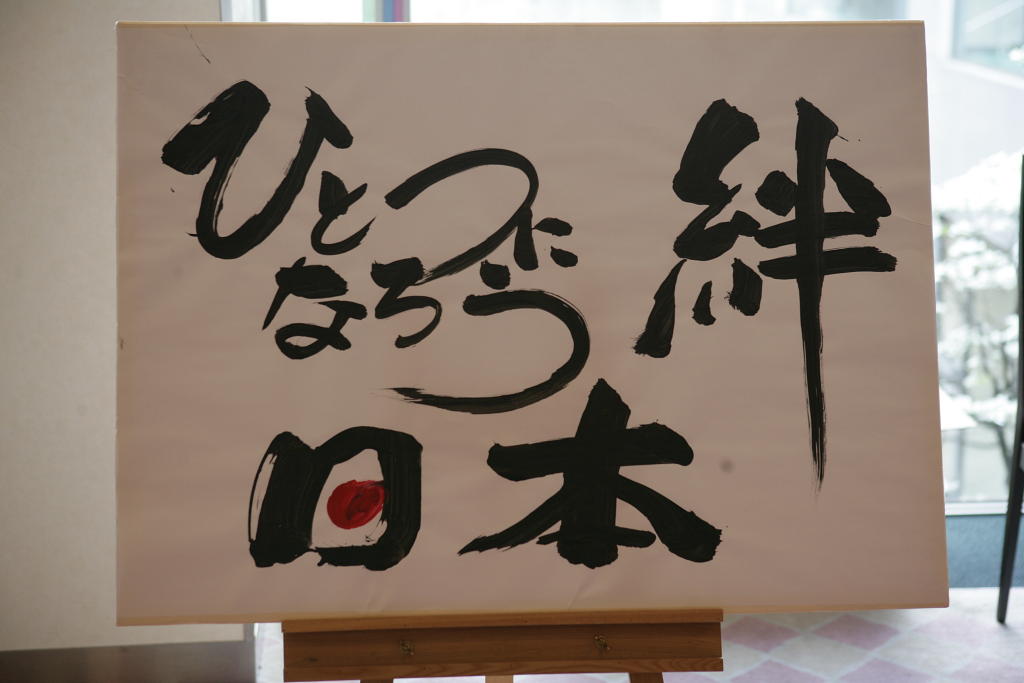 絆
ひとつに
なろう
日本